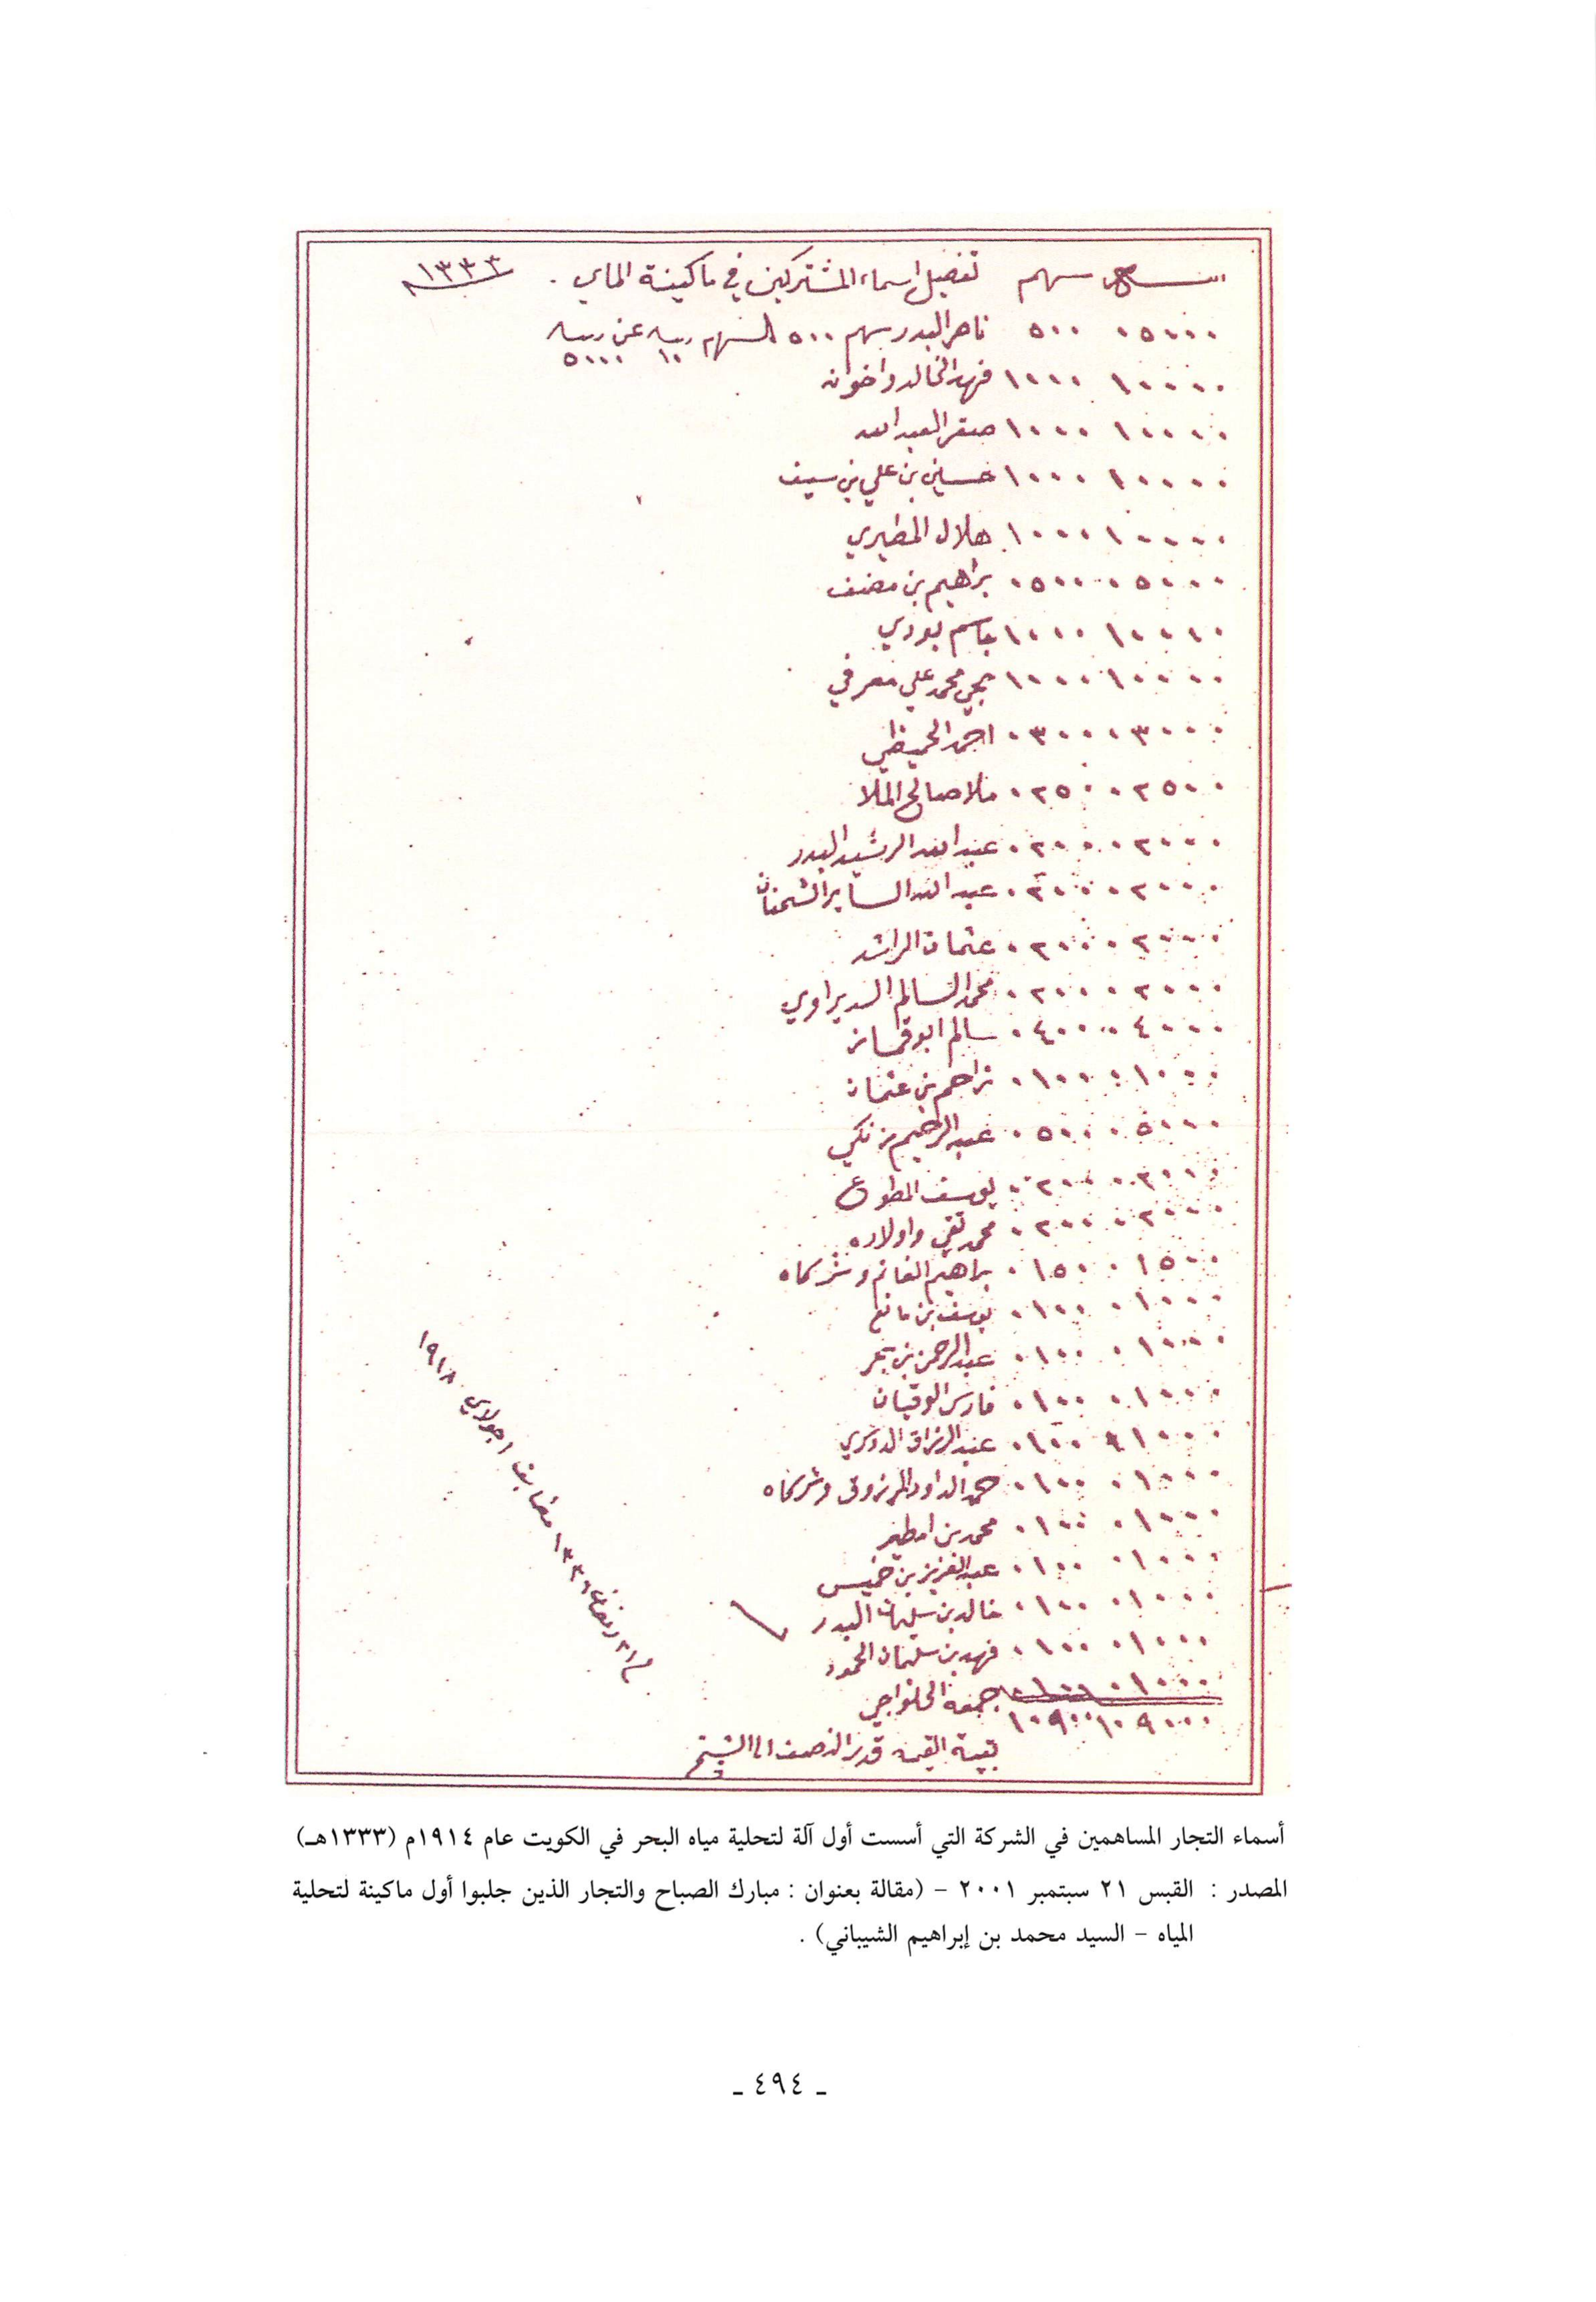 سهم تفصيل اسماء المشتركين في ماكينة الماي . ١٣٣٣
٠٥٠٠٠ ٥٠٠ ناصر البدر سهم ٥٠٠ السهم ربيه ١٠ عن ربيه ٥٠٠٠
١٠٠٠٠ ١٠٠٠ فهد الخالد واخوانه
١٠٠٠٠ ١٠٠٠ صقر العبدالله
١٠٠٠٠ ١٠٠٠ حسين بن علي بن سيف
١٠٠٠٠ ١٠٠٠ هلال المطيري
٠٥٠٠٠ ٠٥٠٠ براهيم بن مضف
١٠٠٠٠ ١٠٠٠ جاسم بودي
١٠٠٠٠ ١٠٠٠ نجي محمد علي معرفي
٠٣٠٠٠ ٠٣٠٠ احمد الحميظي
٠٢٥٠٠ ٠٢٥٠ ملا صالح الملا
٠٢٠٠٠ ٠٢٠٠ عبدالله الرشيد البدر
٠٢٠٠٠ ٠٢٠٠ عبدالله الساير الشحنان
٠٢٠٠٠ ٠٢٠٠ عثمان الراشد
٠٢٠٠٠ ٠٢٠٠ محمد السالم السديراوي
٠٤٠٠٠ ٠٤٠٠ سالم ابوقماز
٠١٠٠٠ ٠١٠٠ مزاحم بن عثمان
٠٥٠٠٠ ٠٥٠٠ عبدالرحيم زنكي
٠٢٠٠٠ ٠٢٠٠ يوسف المطوع
٠٢٠٠٠ ٠٢٠٠ محمد تقي واولاده
٠١٥٠٠ ٠١٥٠ براهيم الغانم وشركاه
٠١٠٠٠ ٠١٠٠ يوسف بن مانع
٠١٠٠٠ ٠١٠٠ عبدالرحمن بن بحر
٠١٠٠٠ ٠١٠٠ فارس الوقيان
٠١٠٠٠ ٠١٠٠ عبدالرزاق الدوسري
٠١٠٠٠ ٠١٠٠ حمد الداود المرزوق وشركاه
٠١٠٠٠ ٠١٠٠ محمد بن امطير
٠١٠٠٠ ٠١٠٠ عبدالعزيز بن خميس
٠١٠٠٠ ٠١٠٠ خالد بن سليمان البدر
٠١٠٠٠ ٠١٠٠ فهد بن سليمان الحمود
٠١٠٠٠ ٠١٠٠ جمعة الحلواجي
١٠٩٠٠٠ ١٠٩٠٠
بقية القيمه قدر النصف الى الشيخ
٢١ رمضان ١٣٣٦ مضابق ١ جولاي ١٩١٨
أسماء التجار المساهمين في الشركة التي أسست أول آلة لتحلية مياه البحر في الكويت عام ١٩١٤م (١٣٣٣هـ)
المصدر : القبس ٢١ سبتمبر ٢٠٠١ - (مقالة بعنوان : مبارك الصباح والتجار الذين جلبوا أول ماكينة لتحلية
المياه - السيد محمد بن إبراهيم الشيباني) .
- ٤٩٤ -